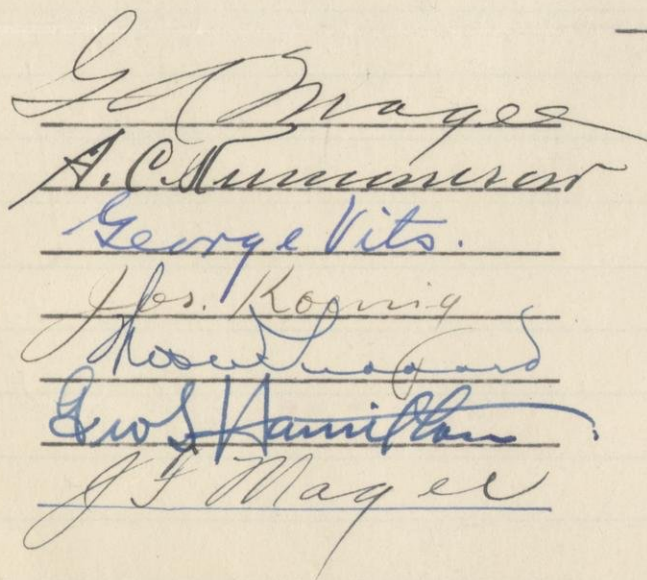 G A Magee
A. C. Kummerow
George Vits.
Jos. Koenig
Geo S Hamilton
J F Magee